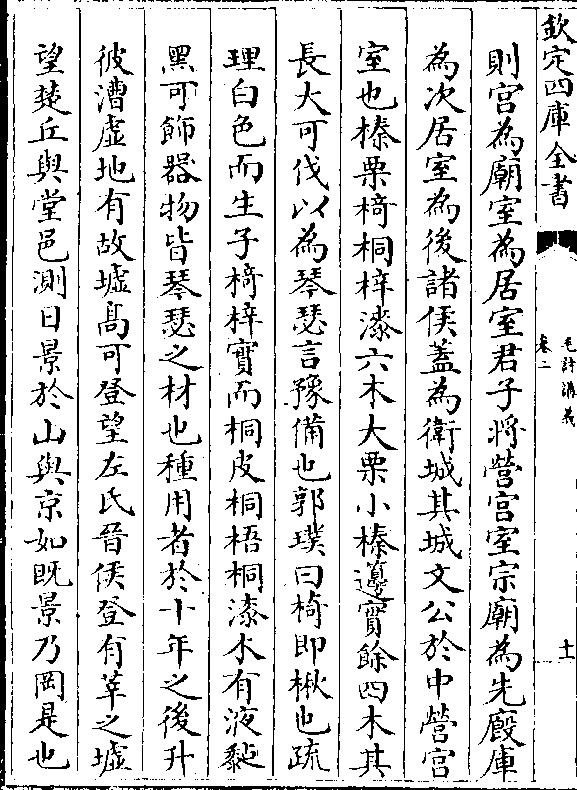 欽定四庫全書
毛詩講義
卷二
十一
則宫為廟室為居室君子將營宫室宗廟為先廐庫
為次居室為後諸侯蓋為衛城其城文公於中營宫
室也榛栗椅桐梓漆六木大栗小榛籩實餘四木其
長大可伐以為琴瑟言豫備也郭璞曰椅即楸也疏
理白色而生子椅梓實而桐皮桐梧桐漆木有液黏
黑可飾器物皆琴瑟之材也種用者於十年之後升
彼漕虛地有故墟髙可登望左氏晉侯登有莘之墟
望楚丘與堂邑測日景於山與京如既景乃岡是也